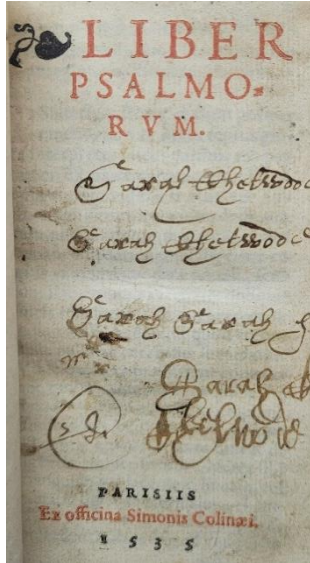 LIBER
PSALMO=
RVM.
Sarah Chetwode
Sarah Chetwode
Sarah Sarah
Sarah
Chetwode
PARISIIS
Ex officina Simonis Colinæi.
1535